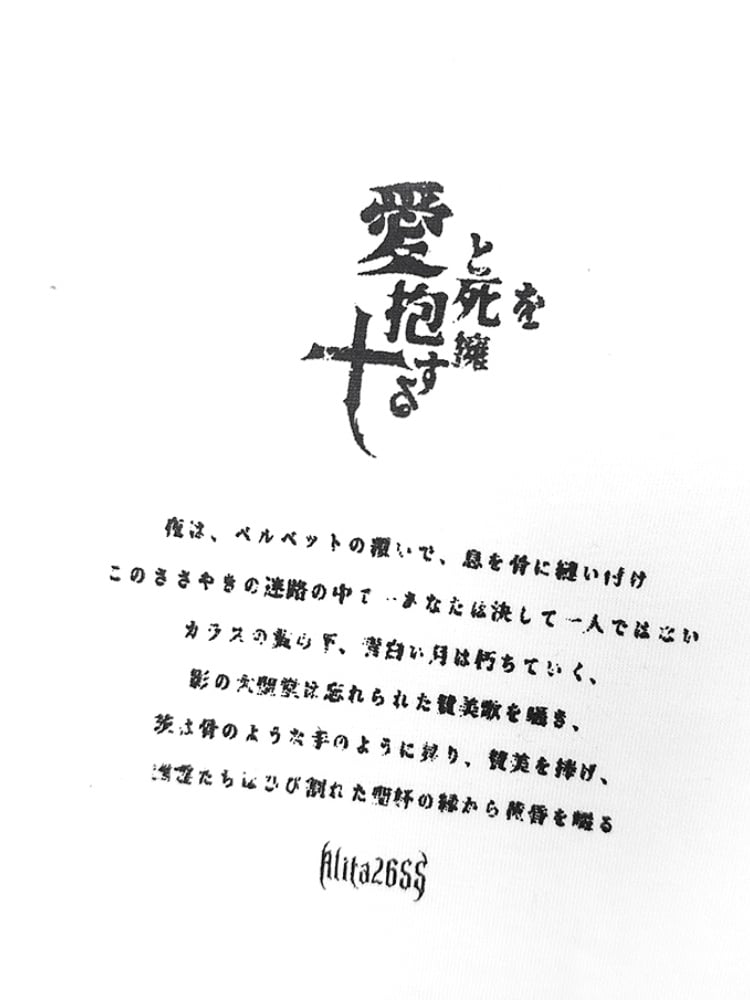 愛と死を
擁抱する
夜は、ベルベットの覆いで、息を骨に縫い付け
このささやきの迷路の中で…あなたは決して一人ではない
カラスの下、青白い月は朽ちていく、
影の大聖堂は忘れられた賛美歌を囁き、
茨は骨のような手のように昇り、賛美を捧げ、
たちはひび割れた聖杯の縁から黄昏を啜る
Alita26SS